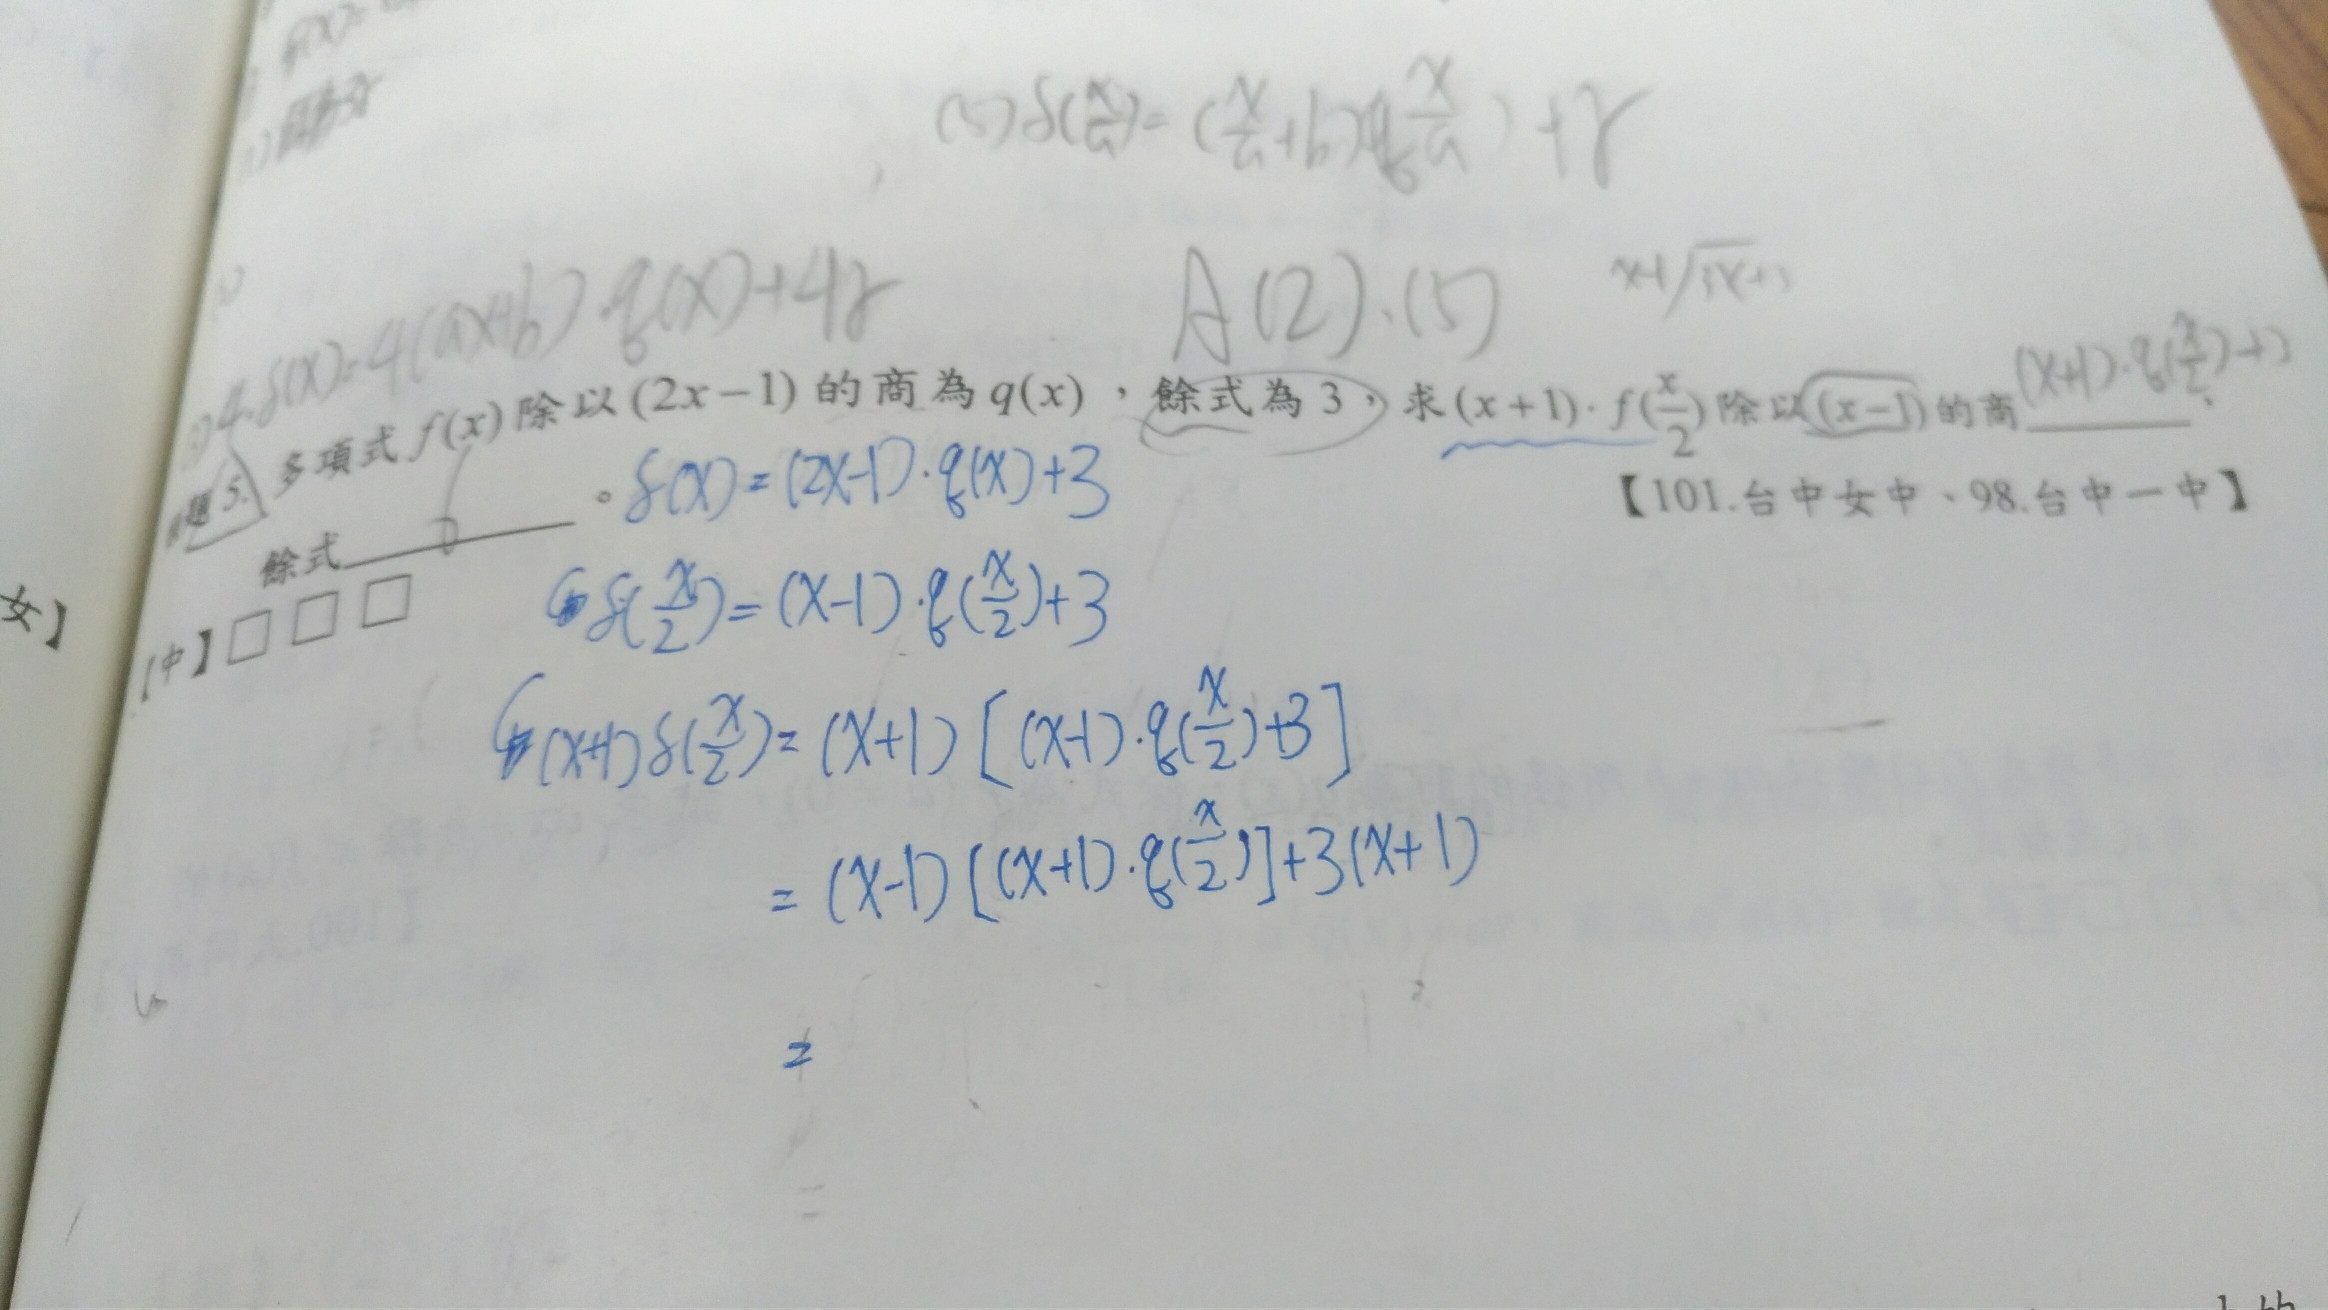 f(x)=
(5) f(x/a)=(x/a+b)q(x/a)+r
4·f(x)=4(ax+b)·q(x)+4r
A(2)、(5)
x-1/3x+3
(x+1)·q(x/2)+3
題5. 多項式 f(x) 除以 (2x-1) 的商為 q(x)，餘式為 3，求 (x+1)·f(x/2) 除以 (x-1) 的商
餘式 。
【101.台中女中、98.台中一中】
f(x)=(2x-1)·q(x)+3
f(x/2)=(x-1)·q(x/2)+3
【中】□□□
女】
(x+1)f(x/2)=(x+1)[(x-1)·q(x/2)+3]
=(x-1)[(x+1)·q(x/2)]+3(x+1)
=
=